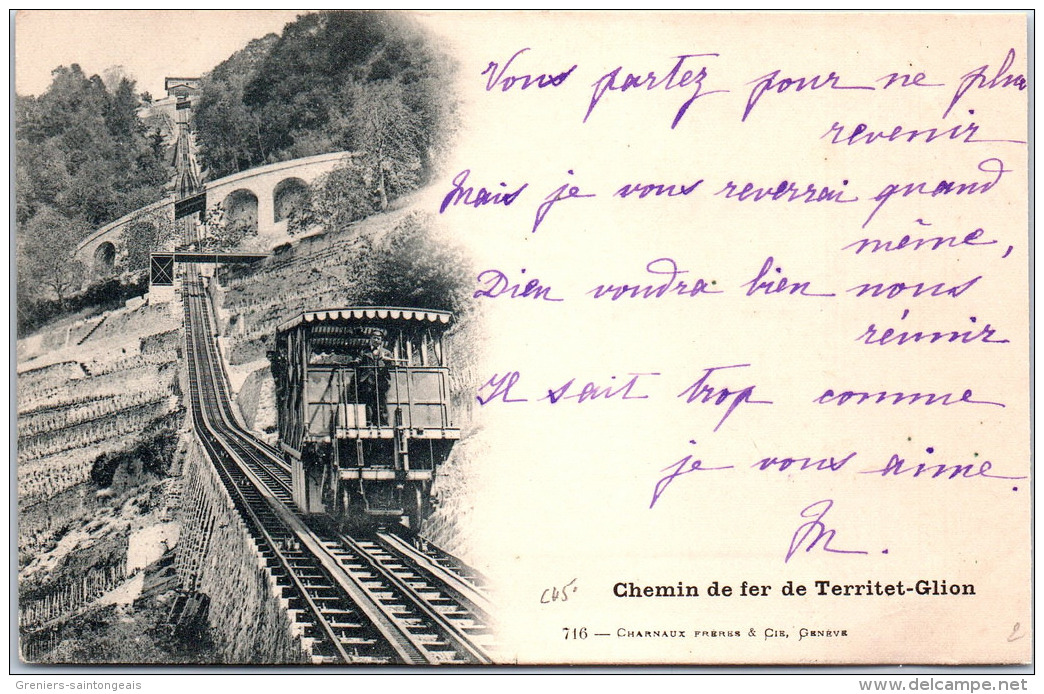 Vous partez pour ne plus
revenir
Mais je vous reverrai quand
même,
Dieu voudra bien nous
réunir
Il sait trop comme
je vous aime.
M.
Chemin de fer de Territet-Glion
716 — CHARNAUX FRÈRES & CIE, GENÈVE
2
Greniers-saintongeais
www.delcampe.net